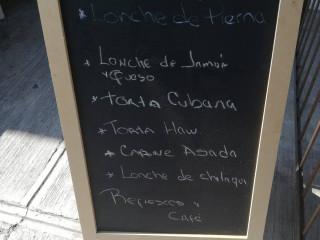 * Lonche de Pierna
* Lonche de Jamón
y Queso
* Torta Cubana
* Torta Haw.
* Carne Asada
* Lonche de chilaqui
Refrescos y
Café